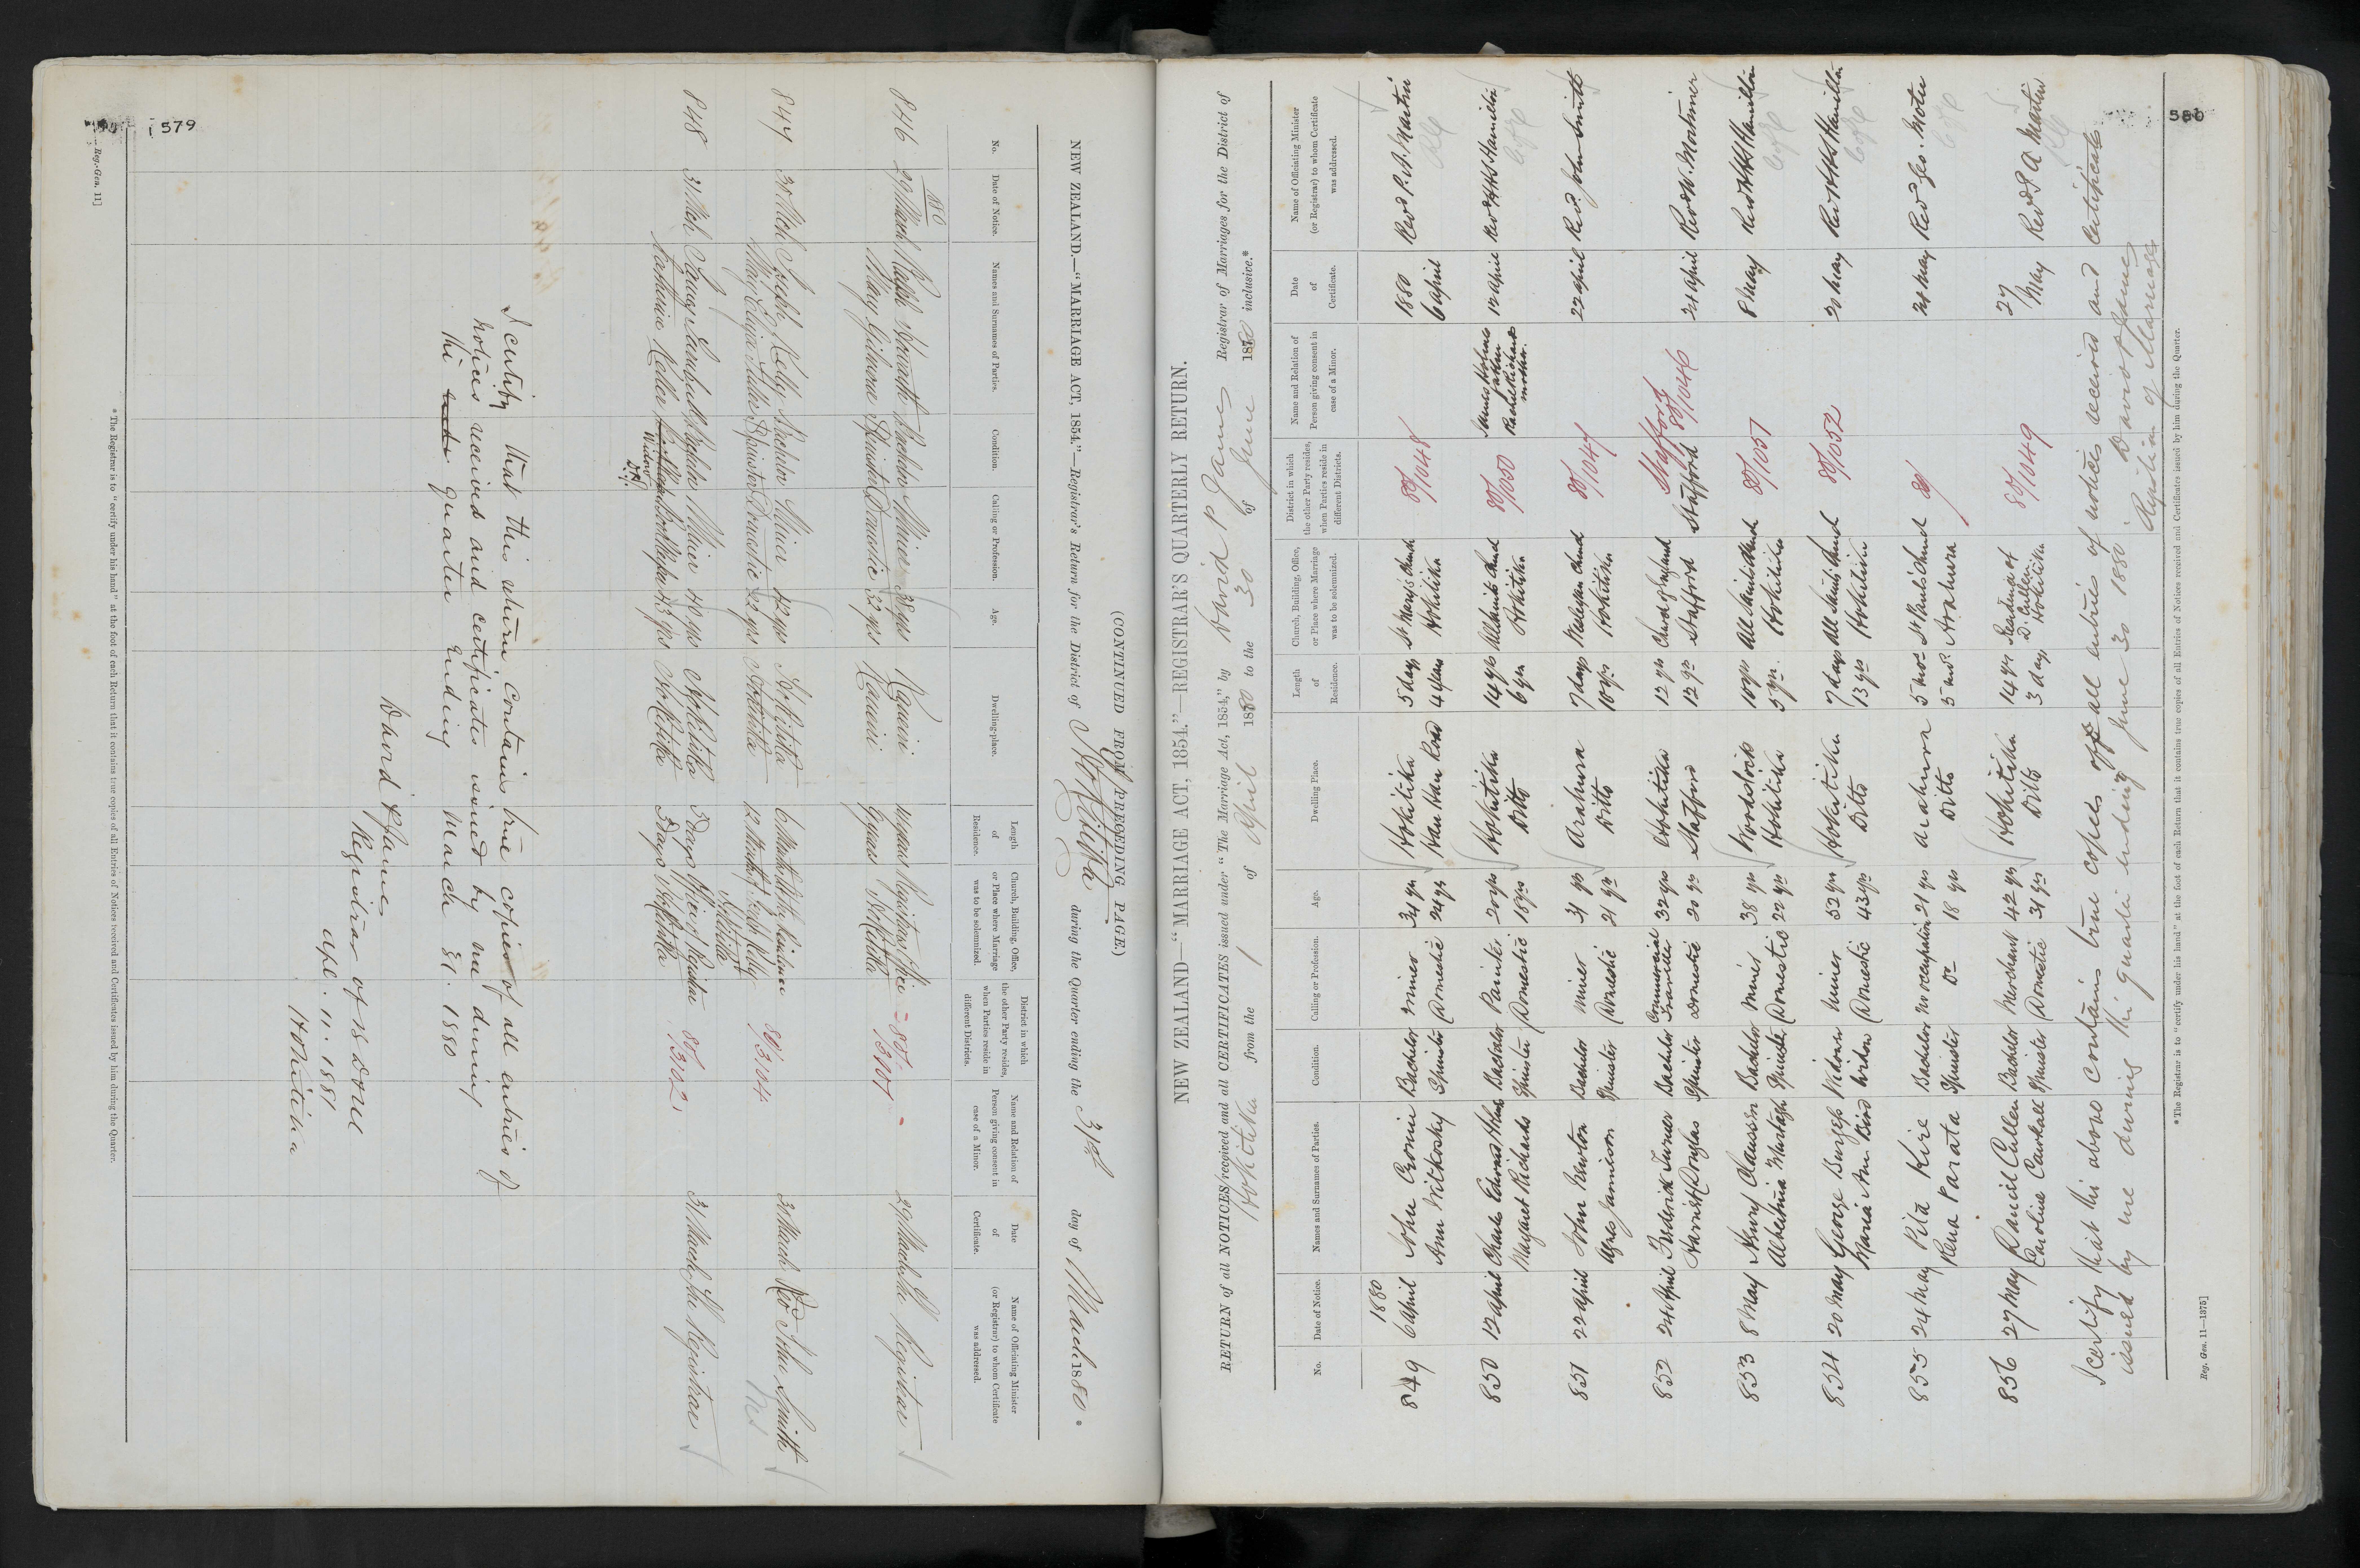 579
Reg.-Gen. 11]
(CONTINUED FROM PRECEDING PAGE.)
NEW ZEALAND.—"MARRIAGE ACT, 1854."—Registrar's Return for the District of Hokitika during the Quarter ending the 31st day of March 1880 *
No. Date of Notice. Names and Surnames of Parties. Condition. Calling or Profession. Age. Dwelling-place. Length of Residence. Church, Building, Office, or Place where Marriage was to be solemnized. District in which the other Party resides, when Parties reside in different Districts. Name and Relation of Person giving consent in case of a Minor. Date of Certificate. Name of Officiating Minister (or Registrar) to whom Certificate was addressed.
1880
846 29 March Ralph Bachelor Miner 38 yrs Kanieri Registrars Office 80/ 29 March The Registrar
Mary Spinster Domestic 32 yrs Kanieri 9 years Hokitika
847 31 Mch Joseph Kelly Bachelor Miner 42 yrs Hokitika 6 Months 80/3104 31 March Revd John Smith
Mary Eliza Spinster Domestic 22 yrs Hokitika 12 Months Joseph Kelly
Hokitika
848 31 Mch James Bachelor Miner 40 yrs Hokitika 3 days Office of Registrar 80/3102 31 March The Registrar
Catherine Keller 43 yrs Hokitika 3 days Hokitika
Widow
I certify that this return contains true copies of all entries of
notices received and certificates issued by me during
the quarter ending March 31. 1880
David P James
Registrar of B D & M
Apl. 11. 1881
Hokitika
* The Registrar is to "certify under his hand" at the foot of each Return that it contains true copies of all Entries of Notices received and Certificates issued by him during the Quarter.
580
NEW ZEALAND—"MARRIAGE ACT, 1854."—REGISTRAR'S QUARTERLY RETURN.
RETURN of all NOTICES received and all CERTIFICATES issued under "The Marriage Act, 1854," by David P James Registrar of Marriages for the District of
Hokitika from the 1 of April 1880 to the 30 of June 1880 inclusive.*
No. Date of Notice. Names and Surnames of Parties. Condition. Calling or Profession. Age. Dwelling Place. Length of Residence. Church, Building, Office, or Place where Marriage was to be solemnized. District in which the other Party resides, when Parties reside in different Districts. Name and Relation of Person giving consent in case of a Minor. Date of Certificate. Name of Officiating Minister (or Registrar) to whom Certificate was addressed.
1880 1880
849 6 April John Cronin Bachelor Miner 34 yrs Hokitika 5 days St Mary's Church 80/1048 6 April Revd P. A. Martin
Ann Witkosky Spinster Domestic 24 yrs Hau Hau Road 4 years Hokitika
850 12 April Charles Edward Bachelor Painter 20 yrs Hokitika 14 yrs All Saints Church 80/1050 James father 12 April Revd H Hamilton
Margaret Richards Spinster Domestic 18 yrs Ditto 6 yrs Hokitika Rachel Richards mother.
851 22 April John Newton Bachelor Miner 31 yrs Arahura 7 days Wesleyan Church 80/1047 22 April Revd. John Smith
Agnes Jamieson Spinster Domestic 21 yrs Ditto 10 yrs Hokitika
852 24 April Frederick Turner Bachelor Commercial Traveller 32 yrs Hokitika 12 yrs Church of England Stafford 80/1046 24 April Revd W. Mortimer
Harriet Douglas Spinster Domestic 20 yrs Stafford 12 yrs Stafford Stafford
853 8 May Henry Claussen Bachelor Miner 38 yrs Woodstock 10 yrs All Saints Church 80/1051 8 May Revd H Hamilton
Albertina Murtagh Spinster Domestic 22 yrs Hokitika 5 yrs. Hokitika
854 20 May George Burgess Widower Miner 52 yrs Hokitika 7 days All Saints Church 80/1052 20 May Revd H Hamilton
Maria Ann Bird Widow Domestic 43 yrs Ditto 13 yrs Hokitika
855 24 May Pita Kire Bachelor No occupation 21 yrs Arahura 5 mos St Pauls Church 80/ 24 May Revd Geo.
Rena Parata Spinster Do 18 yrs Ditto 5 mos Arahura
856 27 May Daniel Cullen Bachelor Merchant 42 yrs Hokitika 14 yrs Residence of D. Cullen 80/1049 27 May Revd P. A Martin
Caroline Spinster Domestic 31 yrs Ditto 3 days Hokitika
I certify that the above contains true copies of all entries of notices received and certificates
issued by me during the quarter ending June 30 1880. David P James
Registrar of Marriages
* The Registrar is to "certify under his hand" at the foot of each Return that it contains true copies of all Entries of Notices received and Certificates issued by him during the Quarter.
Reg. Gen. 11—1375]